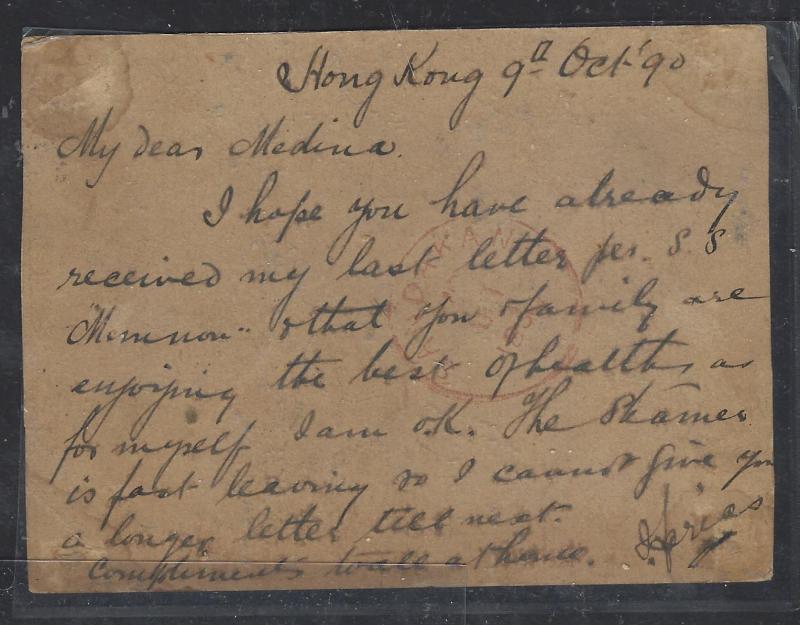 Hong Kong 9th Oct 90
My dear Medina.
I hope you have already
received my last letter per. S.S
Memnon & that you & family are
enjoying the best of health, as
for myself I am o.K. The Steamer
is fast leaving so I cannot give you
a longer letter till next.
Compliments to all at home.